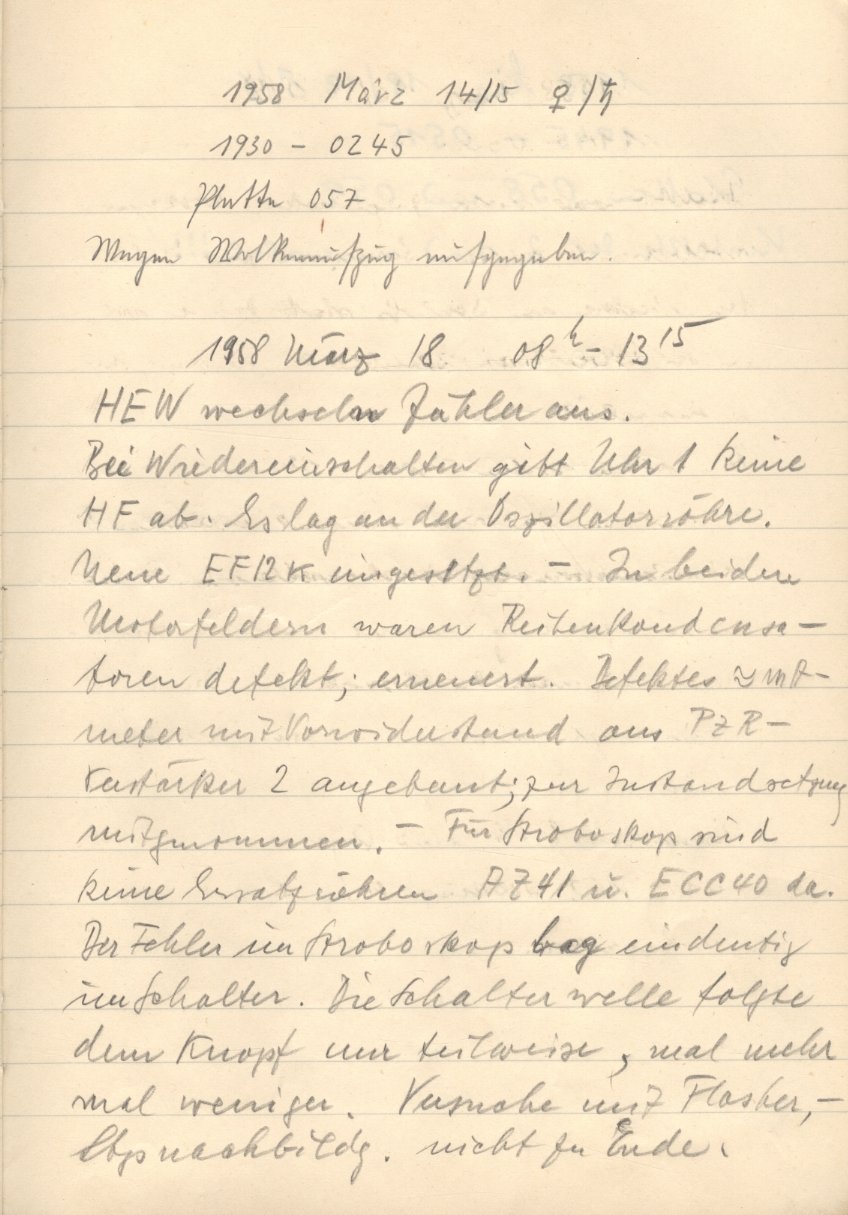 1958 März 14/15 ♀/♄
1930 – 0245
Platte 057
Wegen Wolkenaufzug aufgegeben.
1958 März 18 08ʰ – 13¹⁵
HEW wechseln Zähler aus.
Bei Wiedereinschalten gibt Uhr 1 keine
HF ab. Es lag an der Oszillatorröhre.
Neue EF12K eingesetzt. – In beiden
Motorfeldern waren Reihenkondensa-
toren defekt; erneuert. Defektes ≈ mA-
meter mit Vorwiderstand aus PZR-
Verstärker 2 ausgebaut; zur Instandsetzung
mitgenommen. – Für Stroboskop sind
keine Ersatzröhren AZ41 u. ECC40 da.
Der Fehler im Stroboskop lag eindeutig
im Schalter. Die Schalterwelle folgte
dem Knopf nur teilweise, mal mehr
mal weniger. Versuche mit Flasher,-
nachbildg. nicht zu Ende.